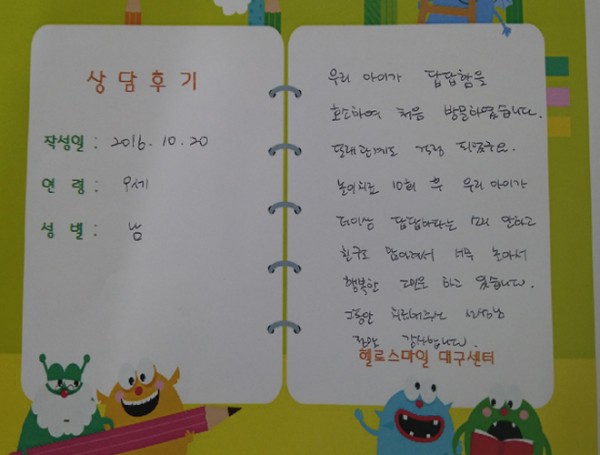 상담후기
작성일 : 2016. 10. 20
연 령 : 9세
성 별 : 남
우리 아이가 답답함을
호소하여 처음 방문하였습니다.
또래관계도 걱정 되었구요.
놀이치료 10회 후 우리 아이가
더이상 답답하다는 소리 안하고
친구도 많아져서 너무 놀아서
행복한 고민을 하고 있습니다.
그동안 치료해주신 선생님
정말 감사합니다.
헬로스마일 대구센터